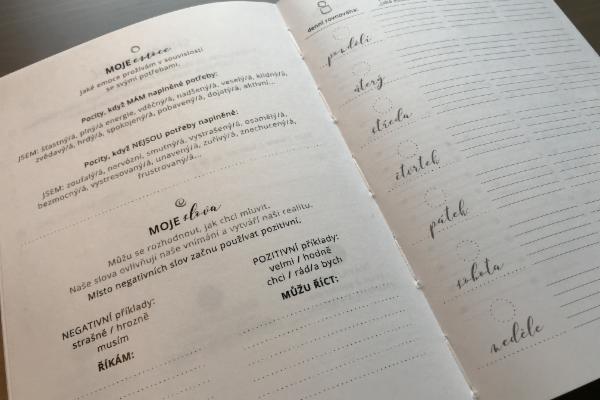 MOJE emoce
Jaké emoce prožívám v souvislosti
se svými potřebami.
Pocity, když MÁM naplněné potřeby:
JSEM: šťastný/á, plný/á energie, vděčný/á, nadšený/á, veselý/á, klidný/á,
zvědavý/á, hrdý/á, spokojený/á, pobavený/á, dojatý/á, aktivní...
Pocity, když NEJSOU potřeby naplněné:
JSEM: zoufalý/á, nervózní, smutný/á, vystrašený/á, osamělý/á,
bezmocný/á, vystresovaný/á, unavený/á, zuřivý/á, znechucený/á,
frustrovaný/á...
MOJE slova
Můžu se rozhodnout, jak chci mluvit.
Naše slova ovlivňují naše vnímání a vytváří naši realitu.
Místo negativních slov začnu používat pozitivní.
NEGATIVNÍ příklady:
strašné / hrozně
musím
ŘÍKÁM:
POZITIVNÍ příklady:
velmi / hodně
chci / rád/a bych
MŮŽU ŘÍCT:
denní rovnováha:
pondělí
úterý
středa
čtvrtek
pátek
sobota
neděle